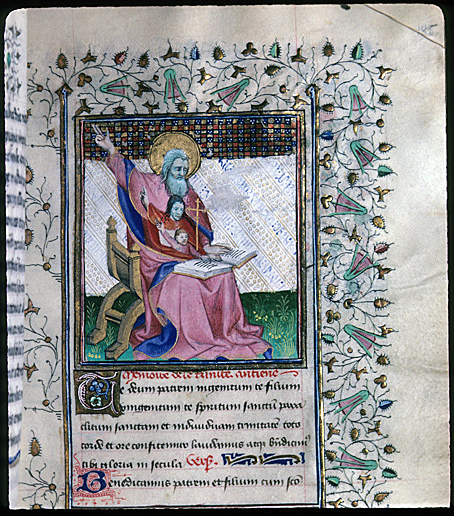 Memoire de le trinite. antiene
Te deum patrem ingenitum te filium
unigenitum te spiritum sanctū para
clitum sanctam et individuam trinitatē toto
corde et ore confitemur laudamus atq; bn̄dicimꝰ
tibi gloria in secula Vers.
Benedicamus patrem et filium cum sc̄o